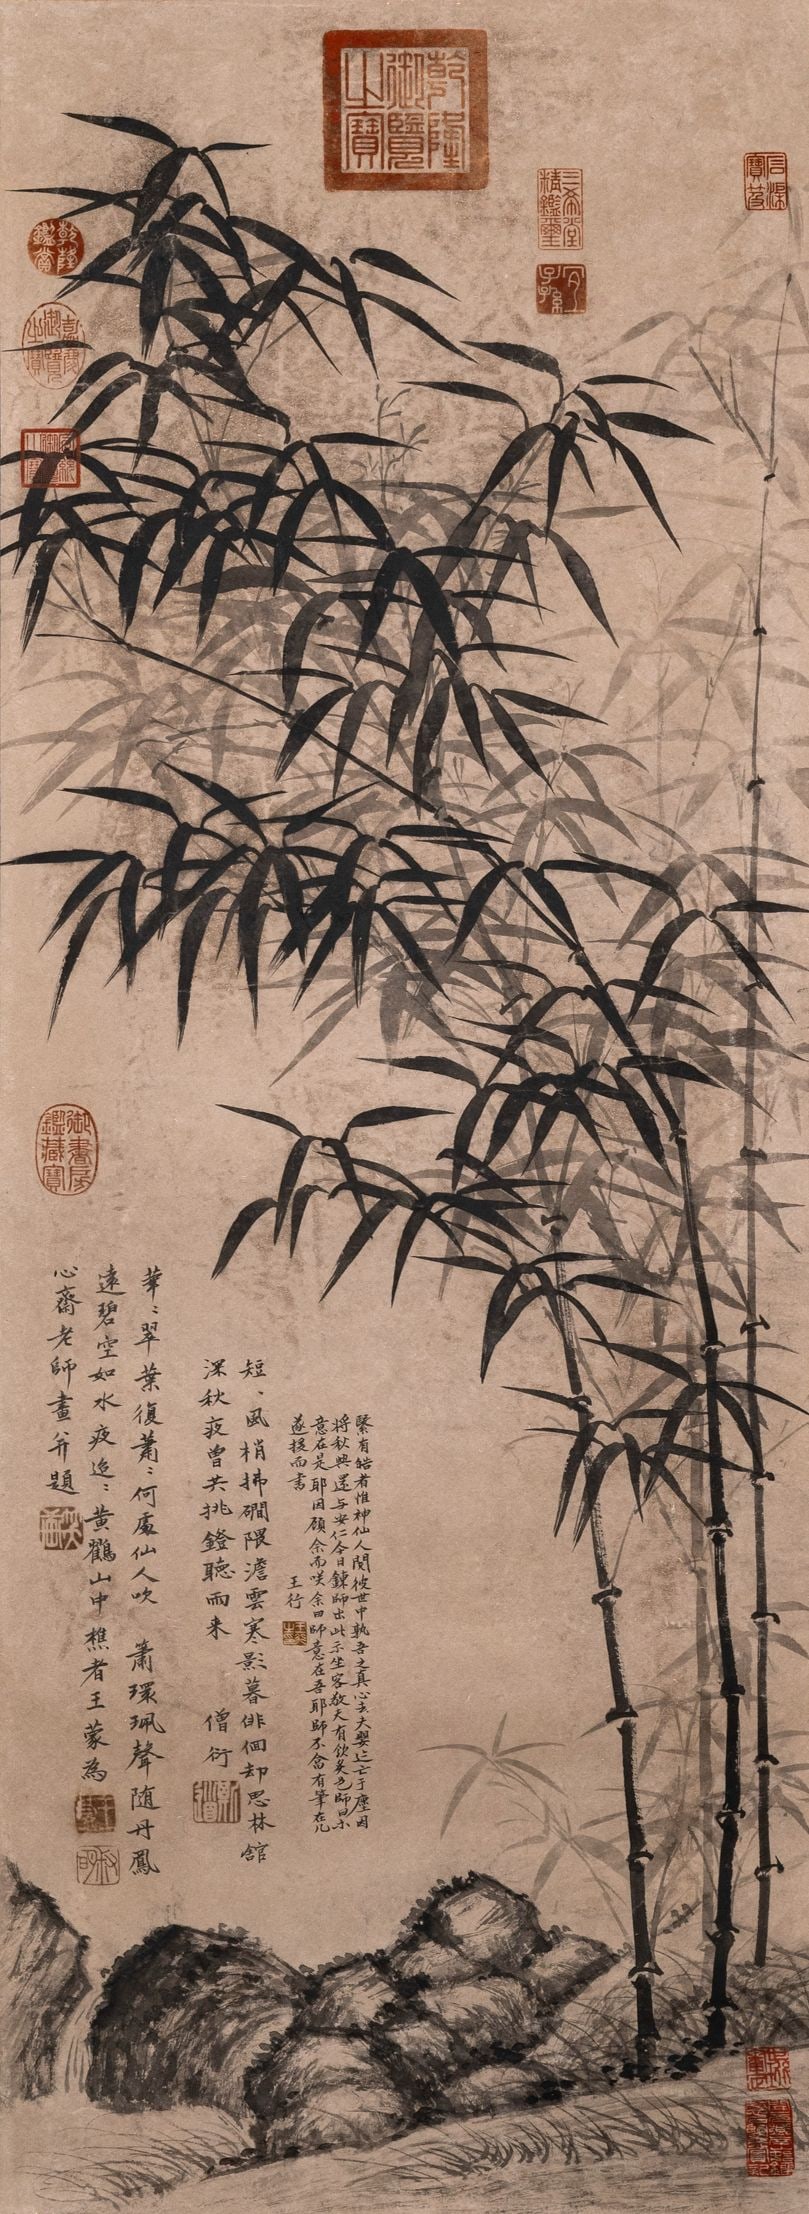 乾隆御覽之寶
石渠寶笈
三希堂精鑑璽
宜子孫
乾隆鑑賞
嘉慶御覽之寶
宣統御覽之寶
御書房鑑藏寶
有皓者惟神仙人閱彼世中執吾之真心去夫亡于塵因
將秋興還与安仁今日鍊師出此示坐客敬夫有飲色師曰小
意在是耶因顧余而咲余曰師意在吾耶師不有筆在几
遂援而書
王行
短〻風梢拂磵隈澹雲寒影暮俳佪却思林館
深秋夜曾共挑鐙聽雨来 僧衍
華〻翠葉復蕭〻何處仙人吹簫環珮聲随丹鳳
遠碧空如水夜迢〻黃鶴山中樵者王蒙為
心齋老師畫并題